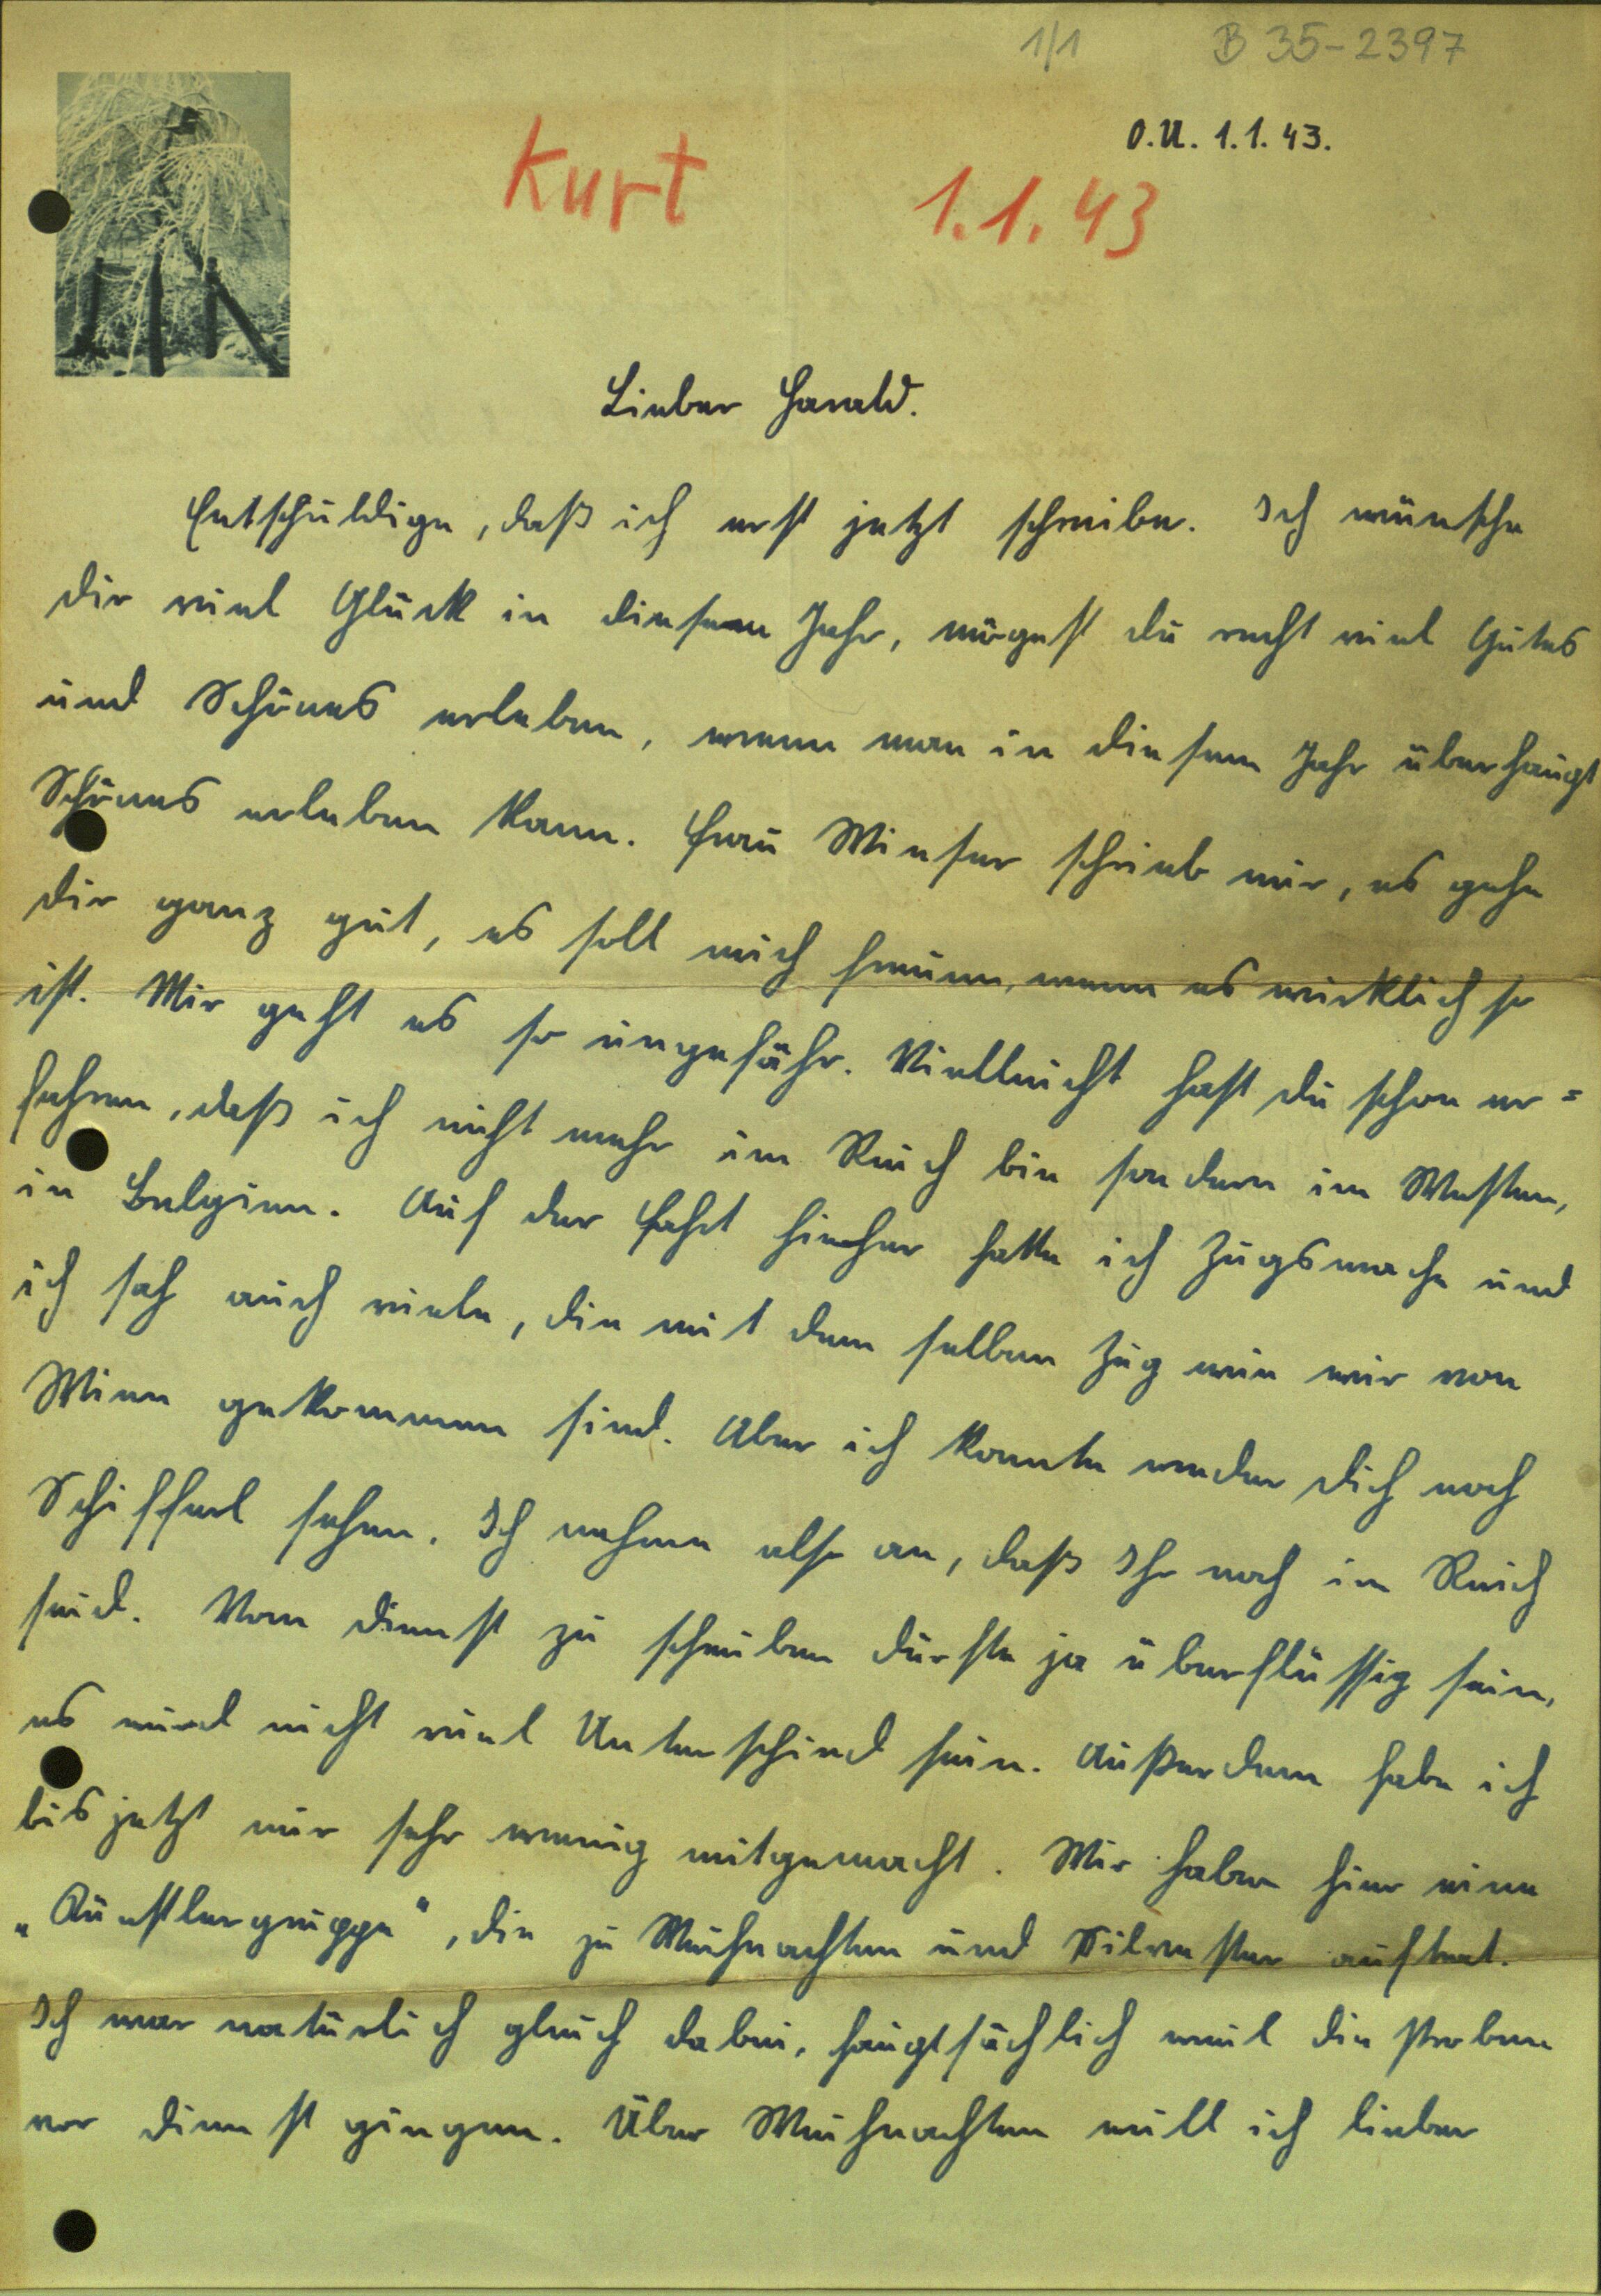 1/1 B 35-2397
O.U. 1.1.43.
Kurt 1.1.43
Lieber Harald.
Entschuldige, daß ich erst jetzt schreibe. Ich wünsche
dir viel Glück in diesem Jahr, mögest du recht viel Gutes
und Schönes erleben, wenn man in diesem Jahr überhaupt
Schönes erleben kann. Frau Wieser schrieb mir, es gehe
dir ganz gut, es soll mich freuen, wenn es wirklich so
ist. Mir geht es so ungefähr. Vielleicht hast du schon er=
fahren, daß ich nicht mehr im Reich bin sondern im Westen,
in Belgien. Auf der Fahrt hierher hatte ich Zugswache und
ich sah auch viele, die mit dem selben Zug wie wir von
Wien gekommen sind. Aber ich konnte weder dich noch
Schifferl sehen. Ich nehme also an, daß Ihr noch im Reich
seid. Vom Dienst zu schreiben dürfte ja überflüssig sein,
es wird nicht viel Unterschied sein. Außerdem habe ich
bis jetzt nur sehr wenig mitgemacht. Wir haben hier eine
„Künstlergruppe“, die zu Weihnachten und Silvester auftrat.
Ich war natürlich gleich dabei, hauptsächlich weil die Proben
vor Dienst gingen. Über Weihnachten will ich lieber